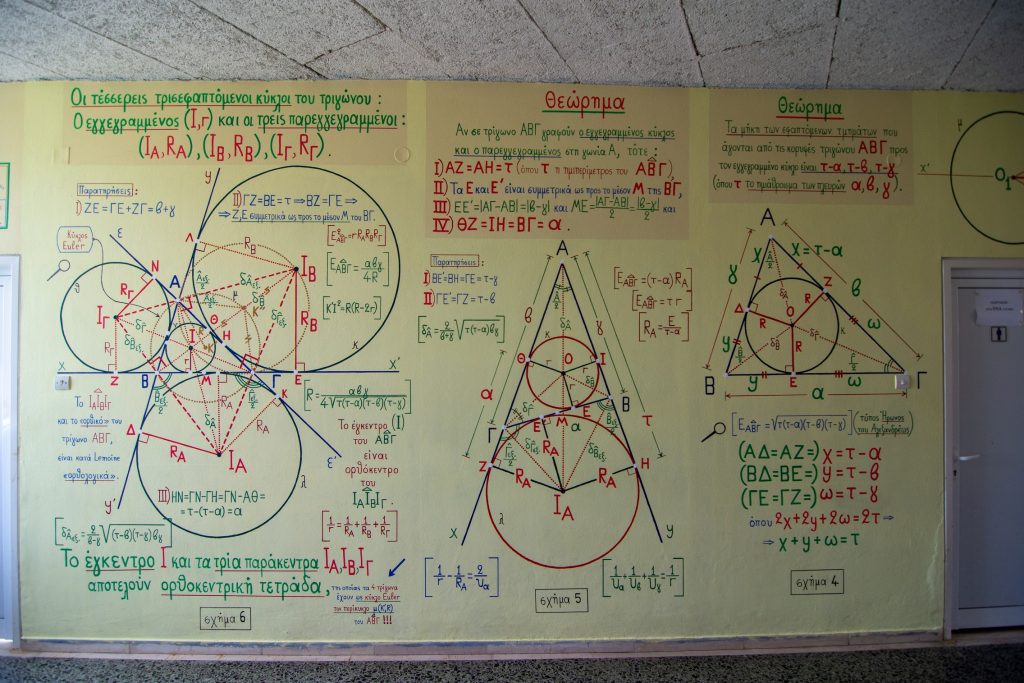 Οι τέσσερεις τρισεφαπτόμενοι κύκλοι του τριγώνου :
Ο εγγεγραμμένος (Ι,r) και οι τρεις παρεγγεγραμμένοι :
(I_A, R_A), (I_B, R_B), (I_Γ, R_Γ).
Παρατηρήσεις :
I) ΖΕ=ΓΕ+ΖΓ=β+γ
II) ΓΖ=ΒΕ=τ ⇒ ΒΖ=ΓΕ ⇒
⇒ Ζ,Ε συμμετρικά ως προς το μέσον Μ του ΒΓ.
Κύκλος
Euler
[Ε_ΑΒΓ = αβγ/4R]
[KI²=R(R-2r)]
[R = αβγ/4√τ(τ-α)(τ-β)(τ-γ)]
Το I_A I_B I_Γ
και το «ορθικό» του
τρίγωνο ΑΒΓ,
είναι κατά Lemoine
«ορθολογικά».
Το έγκεντρο (Ι)
του ΑΒΓ
είναι
ορθόκεντρο
του
I_A I_B I_Γ.
III) ΗΝ=ΓΝ-ΓΗ=ΓΝ-ΑΘ=
=τ-(τ-α)=α
[1/r = 1/R_A + 1/R_B + 1/R_Γ]
Το έγκεντρο Ι και τα τρία παράκεντρα I_A, I_B, I_Γ
αποτελούν ορθοκεντρική τετράδα,
της οποίας τα 4 τρίγωνα
έχουν ως κύκλο Euler
τον περίκυκλο μ(Κ,R)
του ΑΒΓ !!!
σχήμα 6
Θεώρημα
Αν σε τρίγωνο ΑΒΓ γραφούν ο εγγεγραμμένος κύκλος
και ο παρεγγεγραμμένος στη γωνία Α, τότε :
I) ΑΖ=ΑΗ=τ (όπου τ η ημιπερίμετρος του ΑΒΓ),
II) Τα Ε και Ε΄ είναι συμμετρικά ως προς το μέσον Μ της ΒΓ,
III) ΕΕ΄=|ΑΓ-ΑΒ|=|β-γ| και ΜΕ=|ΑΓ-ΑΒ|/2=|β-γ|/2 και
IV) ΘΖ=ΙΗ=ΒΓ=α.
Παρατηρήσεις :
I) ΒΕ΄=ΒΗ=ΓΕ=τ-γ
II) ΓΕ΄=ΓΖ=τ-β
[Ε_ΑΒΓ=(τ-α)R_A]
[Ε_ΑΒΓ=τ r]
[R_A = Ε/τ-α]
[δ_Α = 2/β+γ √τ(τ-α)βγ]
[1/r - 1/R_A = 2/υα]
[1/υα + 1/υβ + 1/υγ = 1/r]
σχήμα 5
Θεώρημα
Τα μήκη των εφαπτόμενων τμημάτων που
άγονται από τις κορυφές τριγώνου ΑΒΓ προς
τον εγγεγραμμένο κύκλο είναι τ-α, τ-β, τ-γ
(όπου τ το ημιάθροισμα των πλευρών α, β, γ).
χ=τ-α
[Ε_ΑΒΓ=√τ(τ-α)(τ-β)(τ-γ)] (τύπος Ήρωνος
του Αλεξανδρέως)
(ΑΔ=ΑΖ=) χ=τ-α
(ΒΔ=ΒΕ=) y=τ-β
(ΓΕ=ΓΖ=) ω=τ-γ
όπου 2χ+2y+2ω=2τ ⇒
⇒ χ+y+ω=τ
σχήμα 4